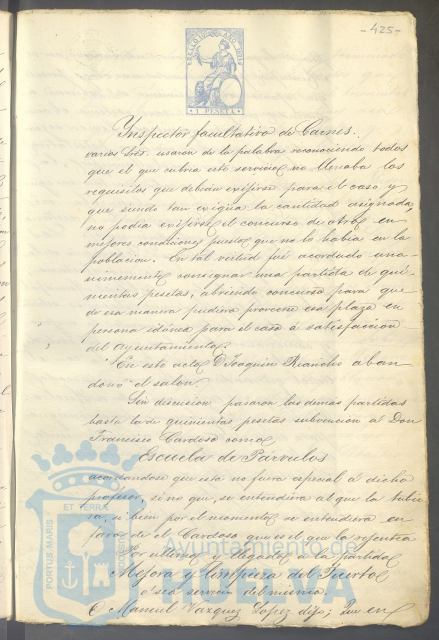 -425-
1 PESETA
Inspector facultativo de Carnes.
varios Sres. usaron de la palabra reconociendo todos
que el que cubria este servicio no llenaba los
requisitos que debian exijirse para el caso y
que siendo tan exigua la cantidad asignada,
no podia exijirse el concurso de otros en
mejores condiciones puesto que no lo habia en la
poblacion. En tal virtud fué acordado una-
nimemente consignar una partida de qui-
nientas pesetas, abriendo concurso para que
de esa manera pudiera proveerse esa plaza en
persona idónea para el caso á satisfaccion
del Ayuntamiento.
En este acto D Joaquin Riancho aban
donó el salon
Sin discusion pasaron las demas partidas
hasta la de quinientas pesetas subvencion á Don
Francisco Cardoso como
Escuela de Parvulos
acordandose que esta no fuera especial á dicho
profesor, si no que se entendiera al que la tubie
ra, si bien por el momento se entendiera en
favor de el Cardoso que es el que la regentea
Por ultimo llegados á la partida
Mejora y limpieza del Puerto
ó sea servicio del mismo.
D Manuel Vazquez Lopez dijo; Que en
PORTUS MARIS
ET TERRAE
Ayuntamiento de
HUELVA